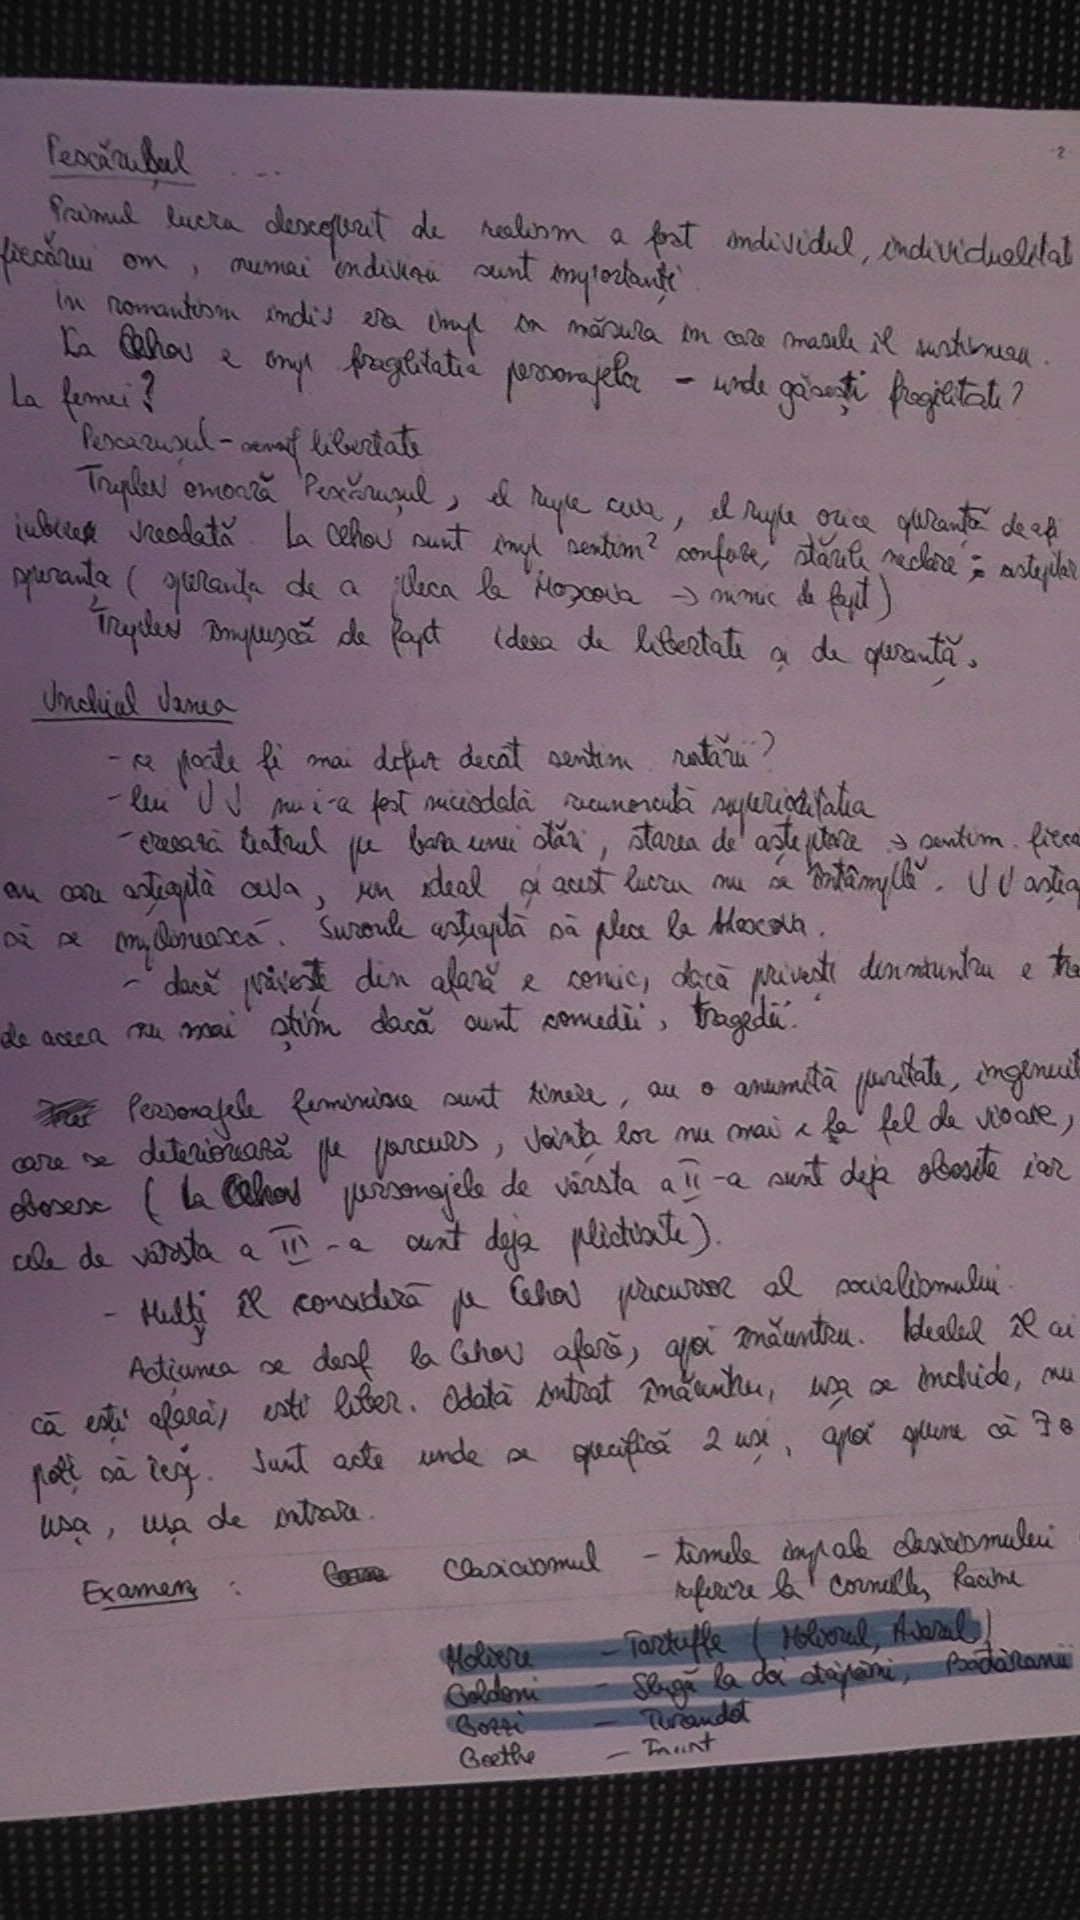 Pescărușul ...
2
Primul lucru descoperit de realism a fost individul, individualitat
fiecărui om, numai indivizii sunt importanți
In romantism indiv era impt în măsura în care masele îl susțineau.
La Cehov e impt fragilitatea personajelor - unde găsești fragilitate?
La femei?
Pescărușul - semnif libertate
Treplev omoară Pescărușul, el rupe ceva, el rupe orice speranță de a fi
iubit vreodată. La Cehov sunt impt sentim confuze, stările neclare; aștep
speranța (speranța de a pleca la Moscova → nimic de fapt)
Treplev împușcă de fapt ideea de libertate și de speranță.
Unchiul Vanea
- ce poate fi mai difuz decât sentim ratării?
- lui UV nu i-a fost niciodată recunoscută superioritatea
- crează teatrul pe baza unei stări, starea de așteptare → sentim. fieca
om care așteaptă ceva, un ideal și acest lucru nu se întâmplă. UV aștea
să se împlinească. Surorile așteaptă să plece la Moscova.
- dacă privești din afară e comic, dacă privești dinăuntru e tra
de aceea nu mai știm dacă sunt comedii, tragedii.
Personajele feminine sunt tinere, au o anumită puritate, ingenuit
care se deteriorează pe parcurs, voința lor nu mai e la fel de vioaie,
obosesc (La Cehov personajele de vârsta a II-a sunt deja obosite iar
cele de vârsta a III-a sunt deja plictisite).
- Mulți îl consideră pe Cehov precursor al socialismului.
Acțiunea se desf la Cehov afară, apoi înăuntru. Idealul îl ai
că ești afară, ești liber. Odată intrat înăuntru, ușa se închide, nu
poți să ieși. Sunt acte unde se specifică 2 uși, apoi spune că ∃ o
ușa, ușa de intrare.
Examen: Clasicismul - temele impt ale clasicismului
referire la Corneille, Racine
Moliere - Tartuffe (Molierul, Avarul)
Goldoni - Slugă la doi stăpâni, Bădăranii
Gozzi - Turandot
Goethe -